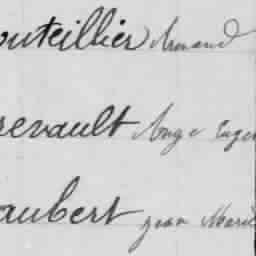 outeillier Armand
revault Ange Eugè
aubert Jean Marie